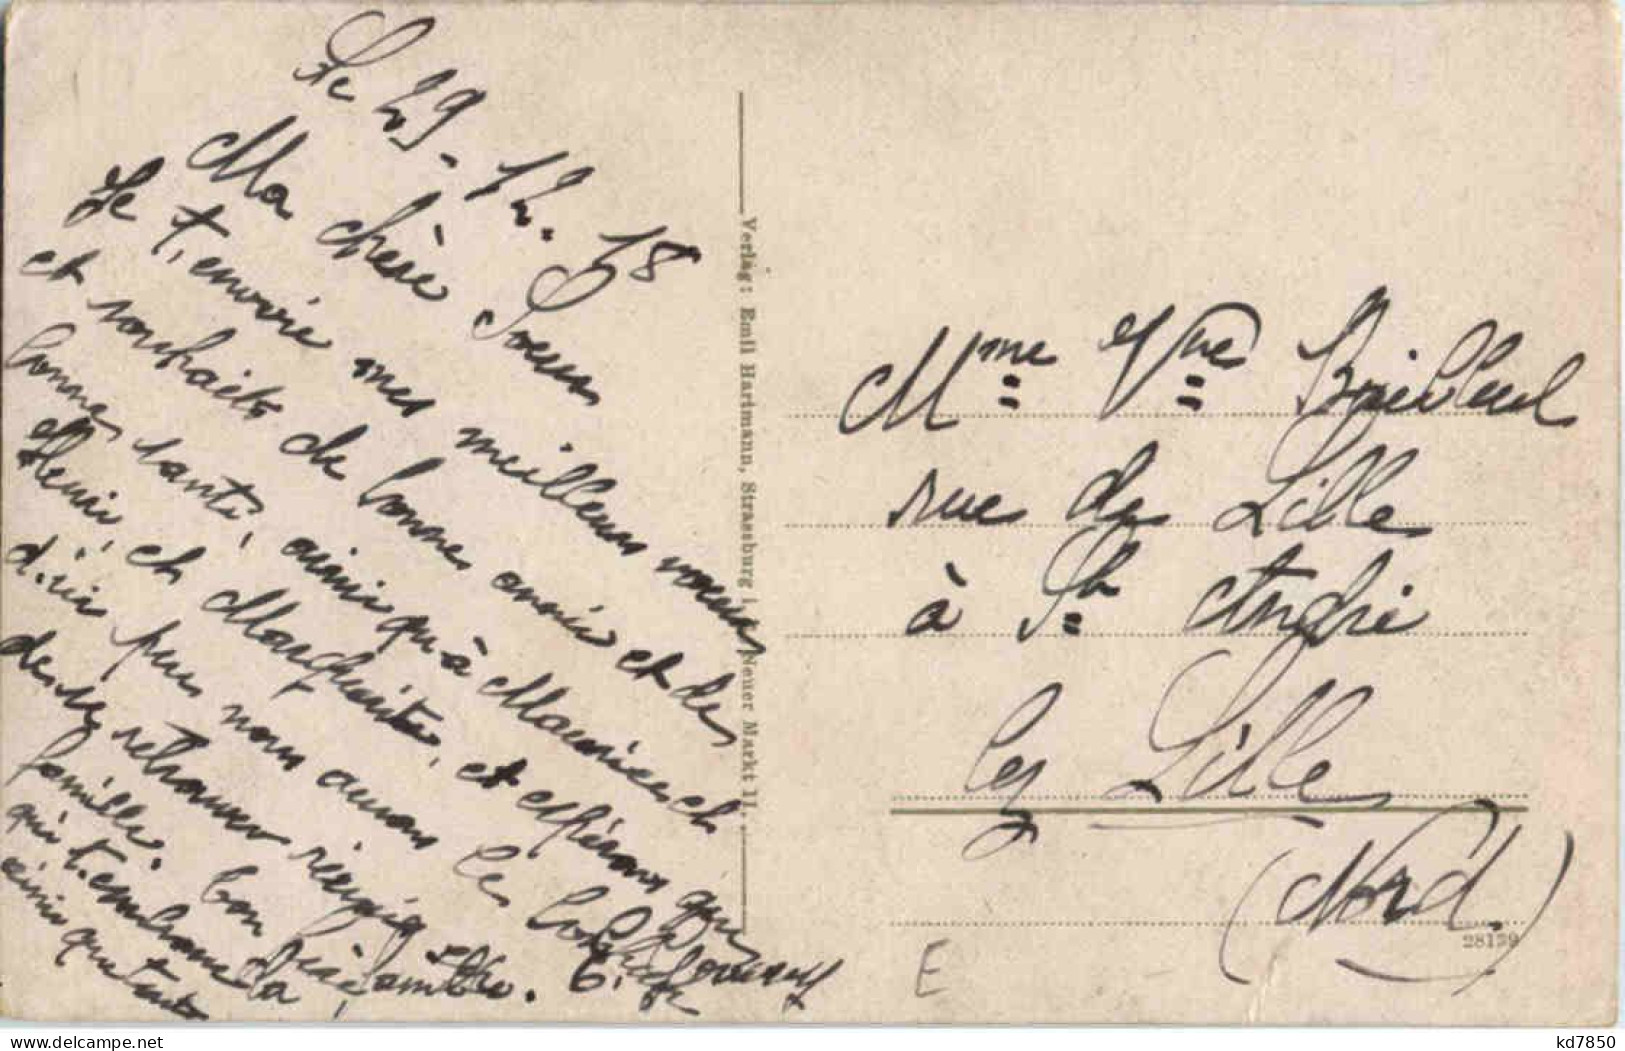 Le 29-12.18
Ma chère Soeur
Je t'envoie mes meilleurs voeux
et souhaits de bonne année et de
bonne santé, ainsi qu'à Maurice et
Henri, et Marguerite, et espérons que
d'ici peu nous aurons le bonheur
de se retrouver réunis
famille. Ton frère
qui t'embrasse
ainsi que toute
la famille.
Mme Vve Bailleul
rue de Lille
à St André
lez Lille
(Nord.)
Verlag: Emil Hartmann, Strassburg i. Neuer Markt 11.
28139
E
kd7850